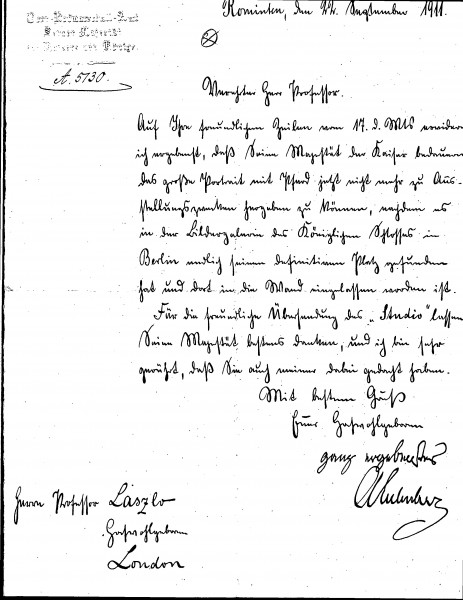 Ober-Hofmarschall-Amt
Seiner Majestät
des Kaisers und Königs.
A. 5130.
Rominten, den 22. September 1911.
Verehrter Herr Professor.
Auf Ihre freundlichen Zeilen vom 17. d. Mts erwidere
ich ergebenst, daß Seine Majestät der Kaiser bedauern
das große Portrait mit Pferd jetzt nicht mehr zu Aus-
stellungszwecken hergeben zu können, nachdem es
in der Bildergalerie des Königlichen Schlosses in
Berlin endlich seinen definitiven Platz gefunden
hat und dort in die Wand eingelassen worden ist.
Für die freundliche Übersendung des „Studio" lassen
Seine Majestät bestens danken, und ich bin sehr
gerührt, daß Sie auch meiner dabei gedacht haben.
Mit bestem Gruß
Euer Hochwohlgeboren
ganz ergebenster
Herrn Professor László
Hochwohlgeboren
London